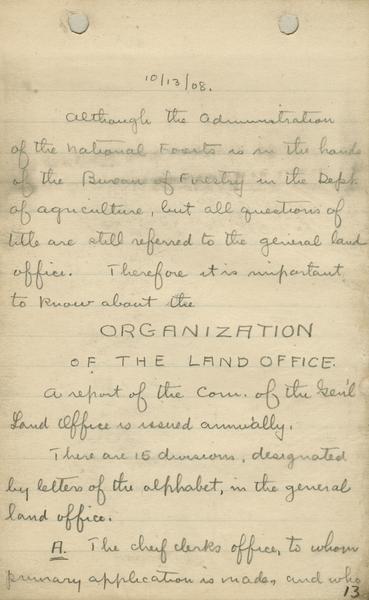 10/13/08.
Although the administration
of the National Forests is in the hands
of the Bureau of Forestry in the Dept.
of agriculture, but all questions of
title are still referred to the general land
office. Therefore it is important
to know about the
ORGANIZATION
OF THE LAND OFFICE.
A report of the Com. of the Gen'l
Land Office is issued annually.
There are 15 divisions, designated
by letters of the alphabet, in the general
land office.
A. The cheif clerks office, to whom
primary application is made, and who
13